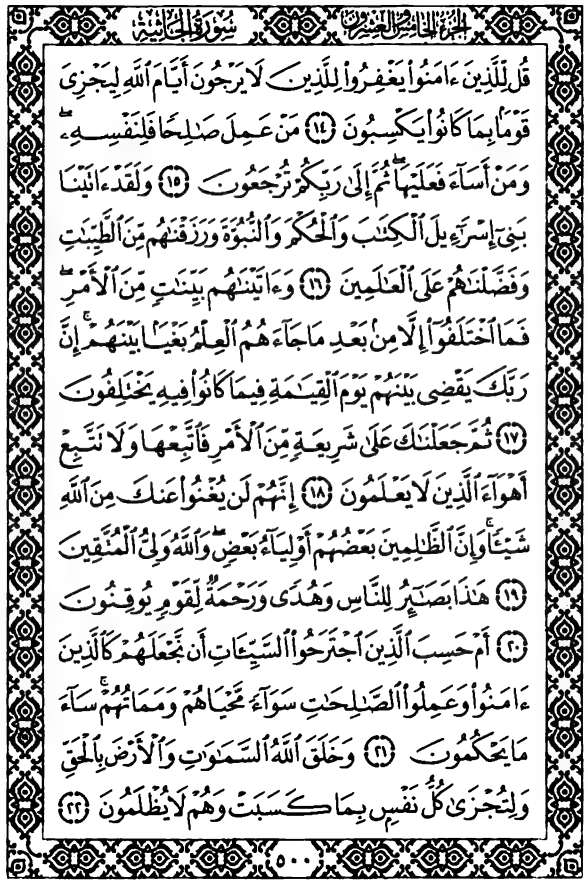 سُورَةُ الجَاثِيَةِ الجُزْءُ الخَامِسُ وَالعِشْرُونَ
قُل لِّلَّذِينَ ءَامَنُوا۟ يَغْفِرُوا۟ لِلَّذِينَ لَا يَرْجُونَ أَيَّامَ ٱللَّهِ لِيَجْزِىَ
قَوْمًۢا بِمَا كَانُوا۟ يَكْسِبُونَ ﴿١٤﴾ مَنْ عَمِلَ صَٰلِحًا فَلِنَفْسِهِۦ ۖ
وَمَنْ أَسَآءَ فَعَلَيْهَا ۖ ثُمَّ إِلَىٰ رَبِّكُمْ تُرْجَعُونَ ﴿١٥﴾ وَلَقَدْ ءَاتَيْنَا
بَنِىٓ إِسْرَٰٓءِيلَ ٱلْكِتَٰبَ وَٱلْحُكْمَ وَٱلنُّبُوَّةَ وَرَزَقْنَٰهُم مِّنَ ٱلطَّيِّبَٰتِ
وَفَضَّلْنَٰهُمْ عَلَى ٱلْعَٰلَمِينَ ﴿١٦﴾ وَءَاتَيْنَٰهُم بَيِّنَٰتٍ مِّنَ ٱلْأَمْرِ ۖ
فَمَا ٱخْتَلَفُوٓا۟ إِلَّا مِنۢ بَعْدِ مَا جَآءَهُمُ ٱلْعِلْمُ بَغْيًۢا بَيْنَهُمْ ۚ إِنَّ
رَبَّكَ يَقْضِى بَيْنَهُمْ يَوْمَ ٱلْقِيَٰمَةِ فِيمَا كَانُوا۟ فِيهِ يَخْتَلِفُونَ
﴿١٧﴾ ثُمَّ جَعَلْنَٰكَ عَلَىٰ شَرِيعَةٍ مِّنَ ٱلْأَمْرِ فَٱتَّبِعْهَا وَلَا تَتَّبِعْ
أَهْوَآءَ ٱلَّذِينَ لَا يَعْلَمُونَ ﴿١٨﴾ إِنَّهُمْ لَن يُغْنُوا۟ عَنكَ مِنَ ٱللَّهِ
شَيْـًٔا ۚ وَإِنَّ ٱلظَّٰلِمِينَ بَعْضُهُمْ أَوْلِيَآءُ بَعْضٍ ۖ وَٱللَّهُ وَلِىُّ ٱلْمُتَّقِينَ
﴿١٩﴾ هَٰذَا بَصَٰٓئِرُ لِلنَّاسِ وَهُدًى وَرَحْمَةٌ لِّقَوْمٍ يُوقِنُونَ
﴿٢٠﴾ أَمْ حَسِبَ ٱلَّذِينَ ٱجْتَرَحُوا۟ ٱلسَّيِّـَٔاتِ أَن نَّجْعَلَهُمْ كَٱلَّذِينَ
ءَامَنُوا۟ وَعَمِلُوا۟ ٱلصَّٰلِحَٰتِ سَوَآءً مَّحْيَاهُمْ وَمَمَاتُهُمْ ۚ سَآءَ
مَا يَحْكُمُونَ ﴿٢١﴾ وَخَلَقَ ٱللَّهُ ٱلسَّمَٰوَٰتِ وَٱلْأَرْضَ بِٱلْحَقِّ
وَلِتُجْزَىٰ كُلُّ نَفْسٍۭ بِمَا كَسَبَتْ وَهُمْ لَا يُظْلَمُونَ ﴿٢٢﴾
٥٠٠